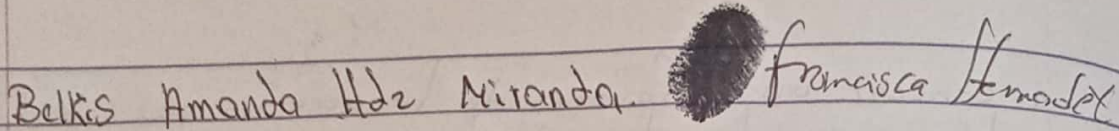 Belkis Amanda Hdz Miranda francisca Hernadez